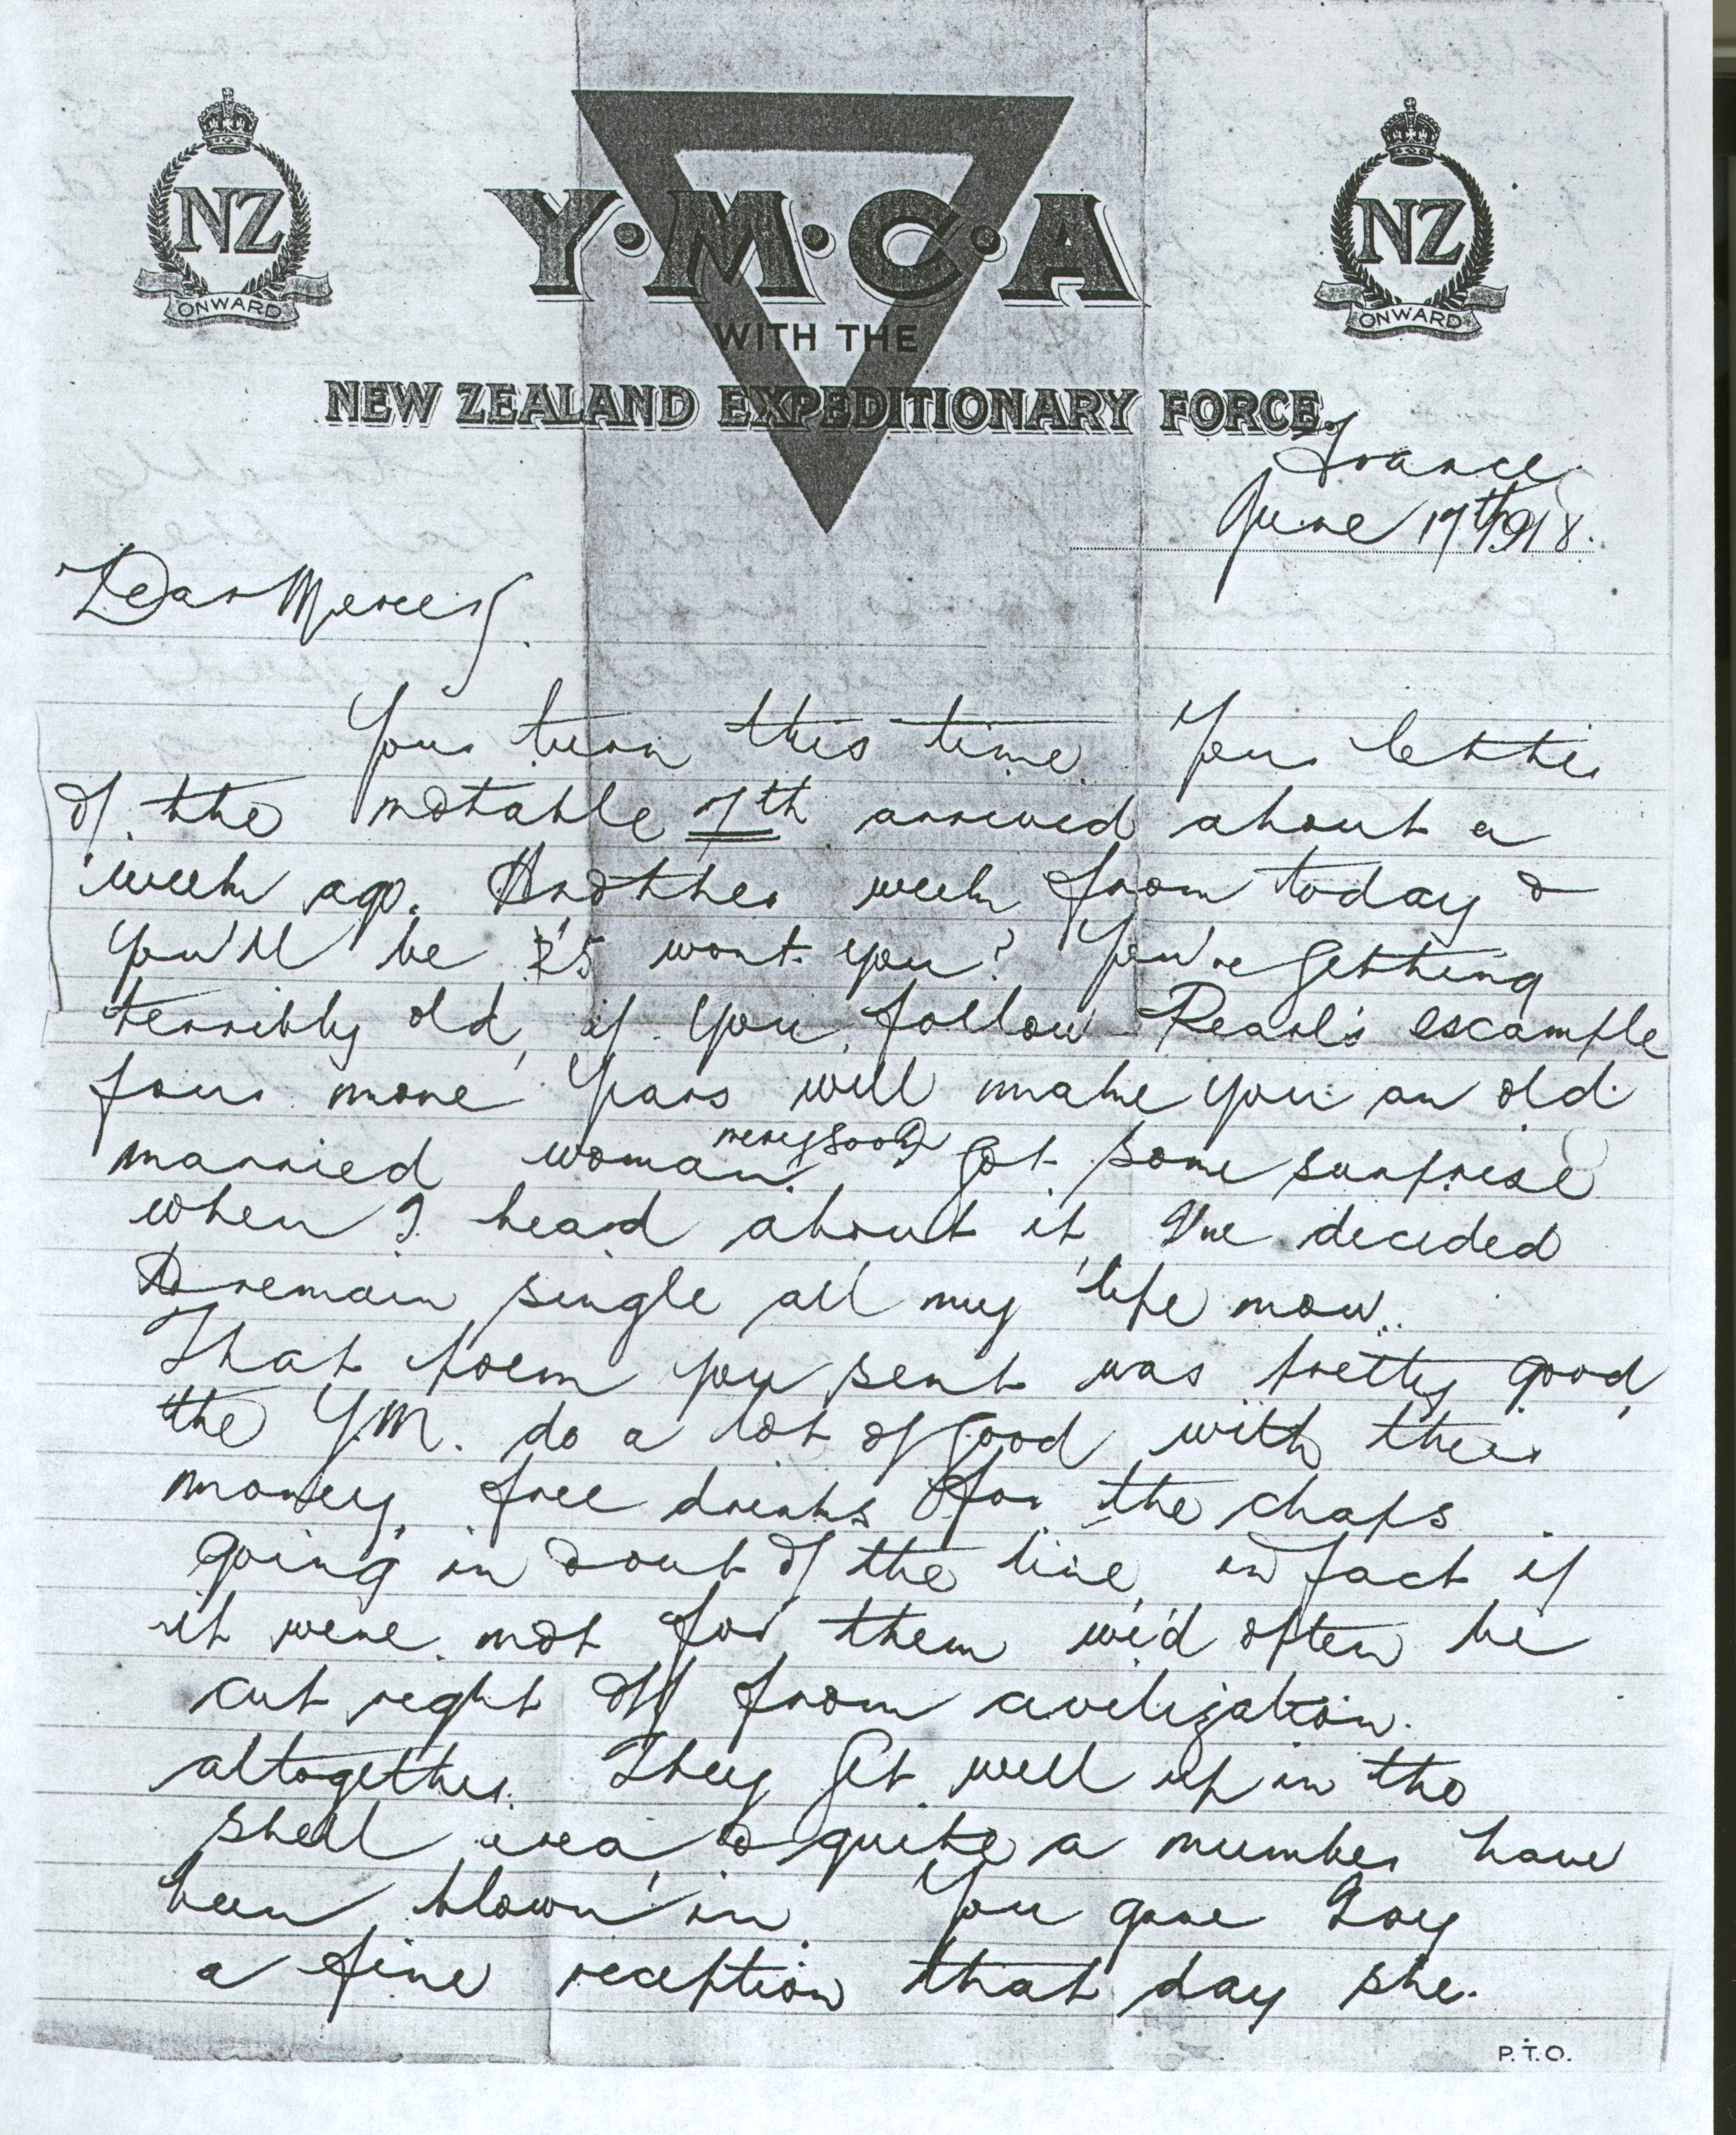 NZ
ONWARD
Y·M·C·A
WITH THE
NEW ZEALAND EXPEDITIONARY FORCE.
NZ
ONWARD
France
June 17th 1918.
Dear Mercy.
Your turn this time. Your letter
of the notable 7th arrived about a
week ago. Another week from today &
you'll be 25 wont you? You're getting
terribly old, if you follow Pearl's example
four more years will make you an old
married woman. very soon Got some surprise
when I heard about it, I've decided
to remain single all my life now.
That poem you sent was pretty good,
the Y.M. do a lot of good with their
money, free drinks for the chaps
going in & out of the line, in fact if
it were not for them we'd often be
cut right off from civilization.
altogether. They get well up in the
shell area & quite a number have
been blown in. You gave
a fine reception that day she.
P.T.O.